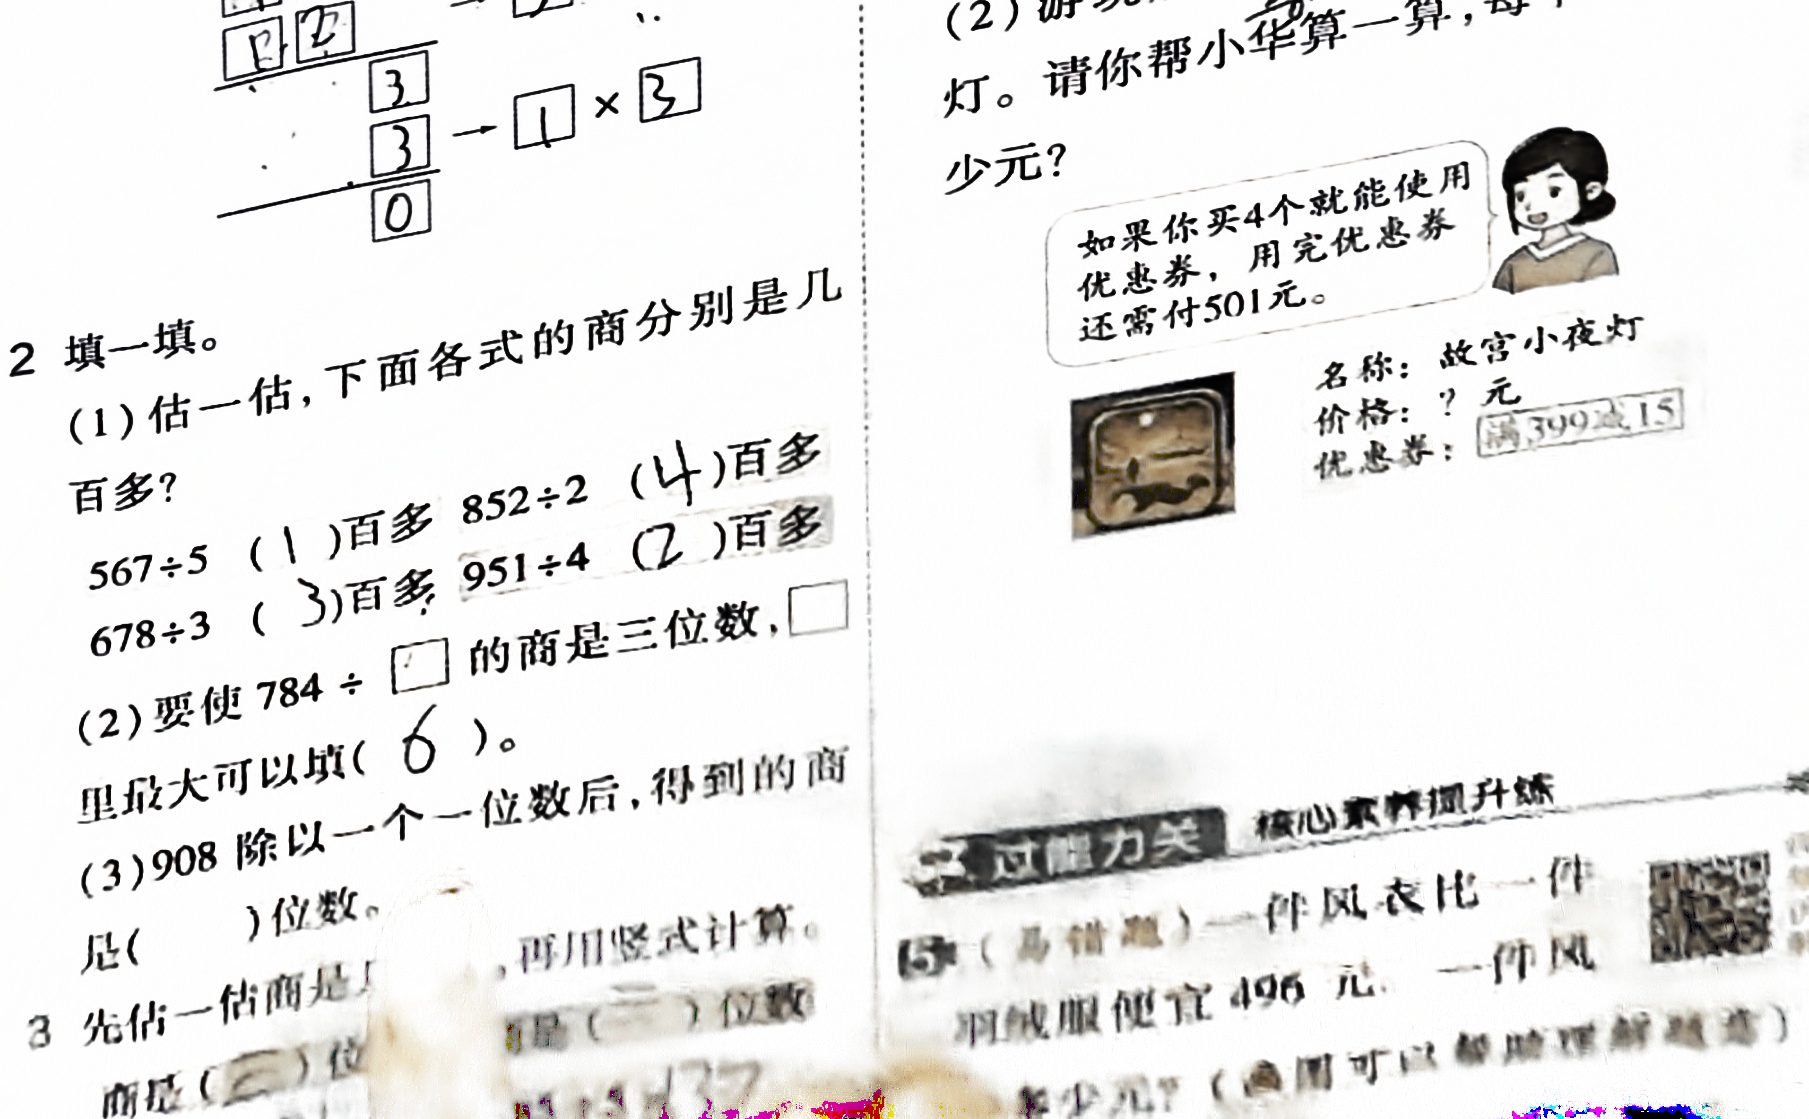 1 2
3
3 → 1 × 3
0
2 填一填。
(1)估一估,下面各式的商分别是几
百多?
567÷5 (1)百多 852÷2 (4)百多
678÷3 (3)百多 951÷4 (2)百多
(2)要使 784 ÷ □ 的商是三位数,□
里最大可以填( 6 )。
(3)908 除以一个一位数后,得到的商
是( )位数。
3 先估一估商是
,再用竖式计算。
商是(二)位
是(二)位数
(2)
灯。请你帮小华算一算,每
少元?
如果你买4个就能使用
优惠券,用完优惠券
还需付501元。
名称:故宫小夜灯
价格:? 元
优惠券:满399减15
过能力关 核心素养提升练
5 (易错题)一件风衣比一件
羽绒服便宜 496 元,一件风
多少元?(画图可以帮助理解题意)